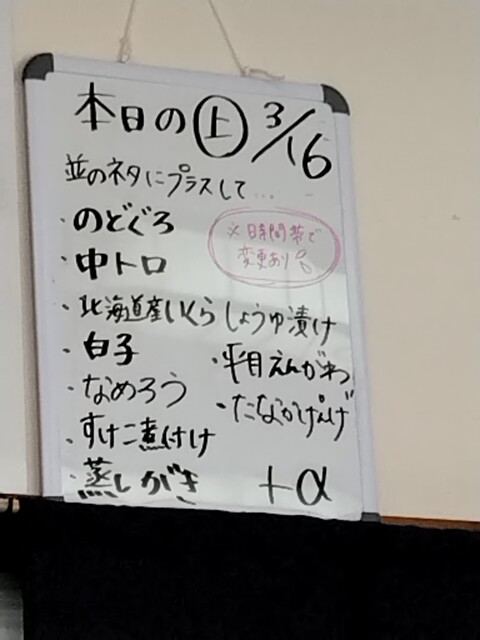 本日の㊤ 3/16
並のネタにプラスして...
・のどぐろ
※時間帯で
変更あり
・中トロ
・北海道産いくらしょうゆ漬け
・白子
・平目えんがわ
・なめろう
・たなかげんげ
・すけこ煮付け
・蒸しがき
+α